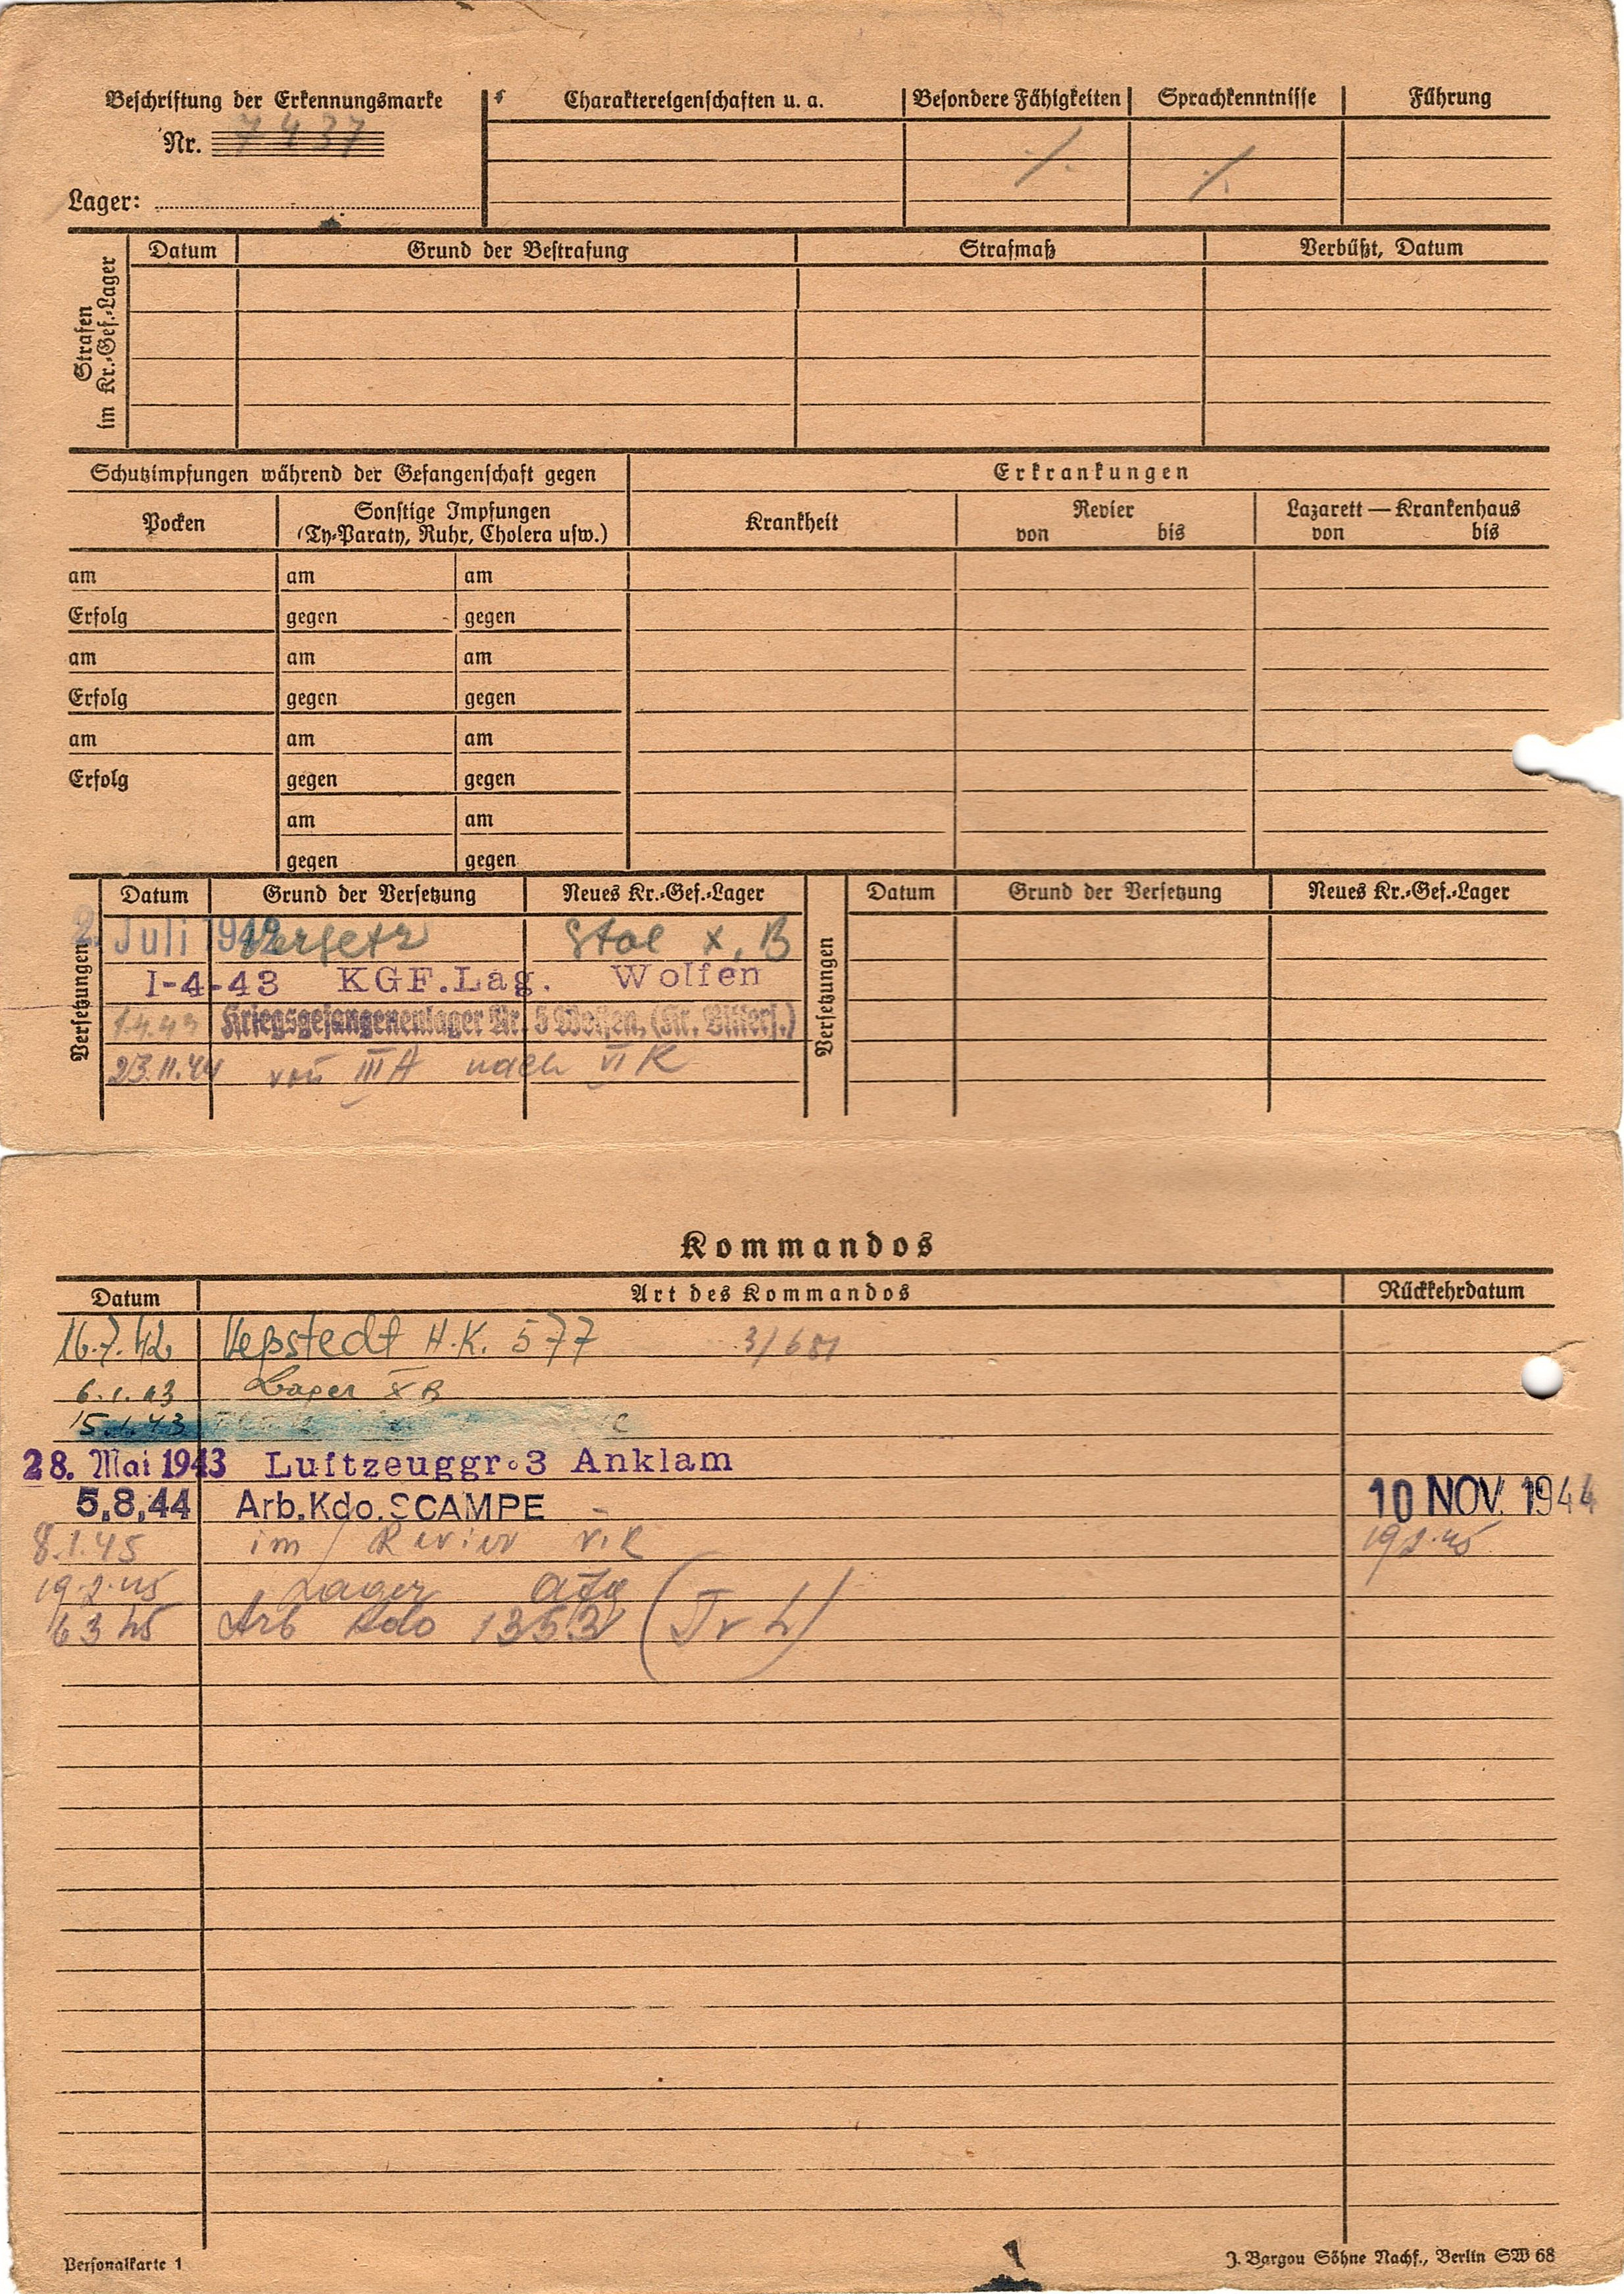 Beschriftung der Erkennungsmarke
Nr. 7437
Lager:
Charaktereigenschaften u. a. Besondere Fähigkeiten Sprachkenntnisse Führung
Strafen im Kr.-Gef.-Lager
Datum Grund der Bestrafung Strafmaß Verbüßt, Datum
Schutzimpfungen während der Gefangenschaft gegen Erkrankungen
Pocken Sonstige Impfungen (Ty-Paraty, Ruhr, Cholera usw.) Krankheit Revier von bis Lazarett — Krankenhaus von bis
am am am
Erfolg gegen gegen
am am am
Erfolg gegen gegen
am am am
Erfolg gegen gegen
am am
gegen gegen
Versetzungen
Datum Grund der Versetzung Neues Kr.-Gef.-Lager
2. Juli 1942 versetz X. B
1-4-43 KGF.Lag. Wolfen
1.4.43 Kriegsgefangenenlager Nr. 5 Wolfen, (Kr. Bitterf.)
23.11.44 von III A nach VI K
Versetzungen
Datum Grund der Versetzung Neues Kr.-Gef.-Lager
Kommandos
Datum Art des Kommandos Rückkehrdatum
16.7.42 H.K. 577
6.1.43 Lager X B
15.1.43
28. Mai 1943 Luftzeuggr.3 Anklam
5.8.44 Arb.Kdo.SCAMPE 10 NOV. 1944
8.1.45 im Revier 19.2.45
19.2.45 Lager
6 3 45 Arb Kdo 1353
Personalkarte 1
J. Bargou Söhne Nachf., Berlin SW 68